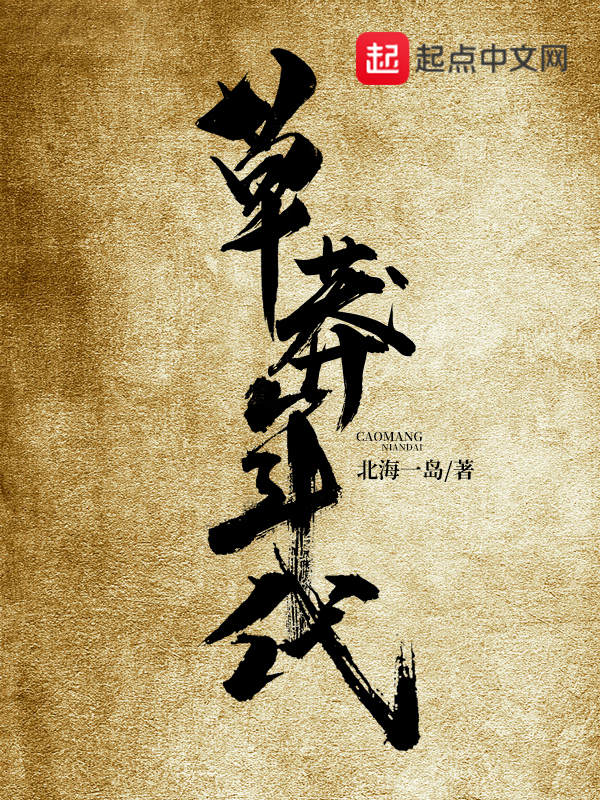 起 起点中文网
草莽年代
CAOMANG
NIANDAI
北海一岛/著